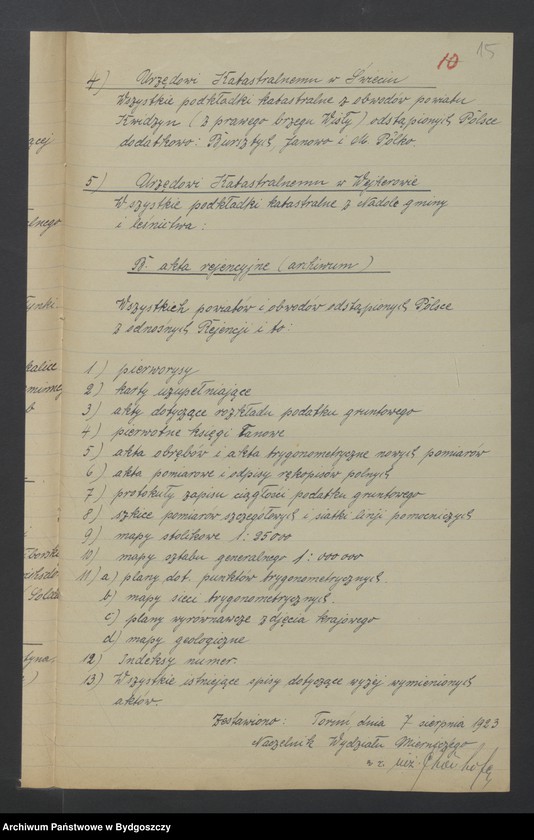 10 15
4) Urzędowi Katastralnemu w Świeciu
Wszystkie podkładki katastralne z obwodów powiatu
Kwidzyn (z prawego brzegu Wisły) odstąpionych Polsce
dodatkowo: Bursztych, Janowo i M. Pólko.
5) Urzędowi Katastralnemu w Wejherowie
Wszystkie podkładki katastralne z Nadole gminy
i leśnictwa:
B. akta rejencyjne (archiwum)
Wszystkich powiatów i obwodów odstąpionych Polsce
z odnośnych Rejencji i to:
1) pierworysy
2) karty uzupełniające
3) akty dotyczące rozkładu podatku gruntowego
4) pierwotne księgi łanowe
5) akta obrębów i akta trygonometryczne nowych pomiarów
6) akta pomiarowe i odpisy rękopisów polnych
7) protokuły zapisu ciągłości podatku gruntowego
8) szkice pomiarów szczegółowych i siatki linji pomocniczych
9) mapy stolikowe 1:25000
10) mapy sztabu generalnego 1:000000
11) a) plany dot. punktów trygonometrycznych.
b) mapy sieci trygonometrycznych.
c) plany wyrównawcze zdjęcia krajowego
d) mapy geologiczne
12) Indeksy numer.
13) Wszystkie istniejące spisy dotyczące wyżej wymienionych
aktów.
Zestawiono: Toruń dnia 7 sierpnia 1923
Naczelnik Wydziału Mierniczego
inż.
Archiwum Państwowe w Bydgoszczy